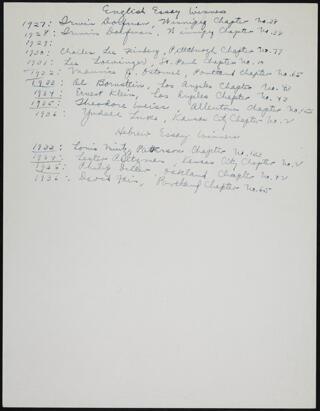 English Essay Winners
1927: Irwin Dorfman, Winnipeg Chapter No. 28
1928: Irwin Dorfman, Winnipeg Chapter No. 28
1929:
1930: Charles Lee, Pittsburgh Chapter No. 77
1931: Lee Loevinger, St. Paul Chapter No.
1932: Maurice, Portland Chapter No. 65
1933: Bornstein, Los Angeles Chapter No.
1934: Ernest Klein, Los Angeles Chapter No.
1935: Theodore Weiss, Allentown Chapter No.
1936: Luke, Kansas City Chapter No. 2
Hebrew Essay Winners
1933: Louis Mintz, Paterson Chapter No.
1934: Lester, Kansas City Chapter No. 2
1935: Philip Diller, Oakland Chapter No.
1936: David Fain, Portland Chapter No. 65